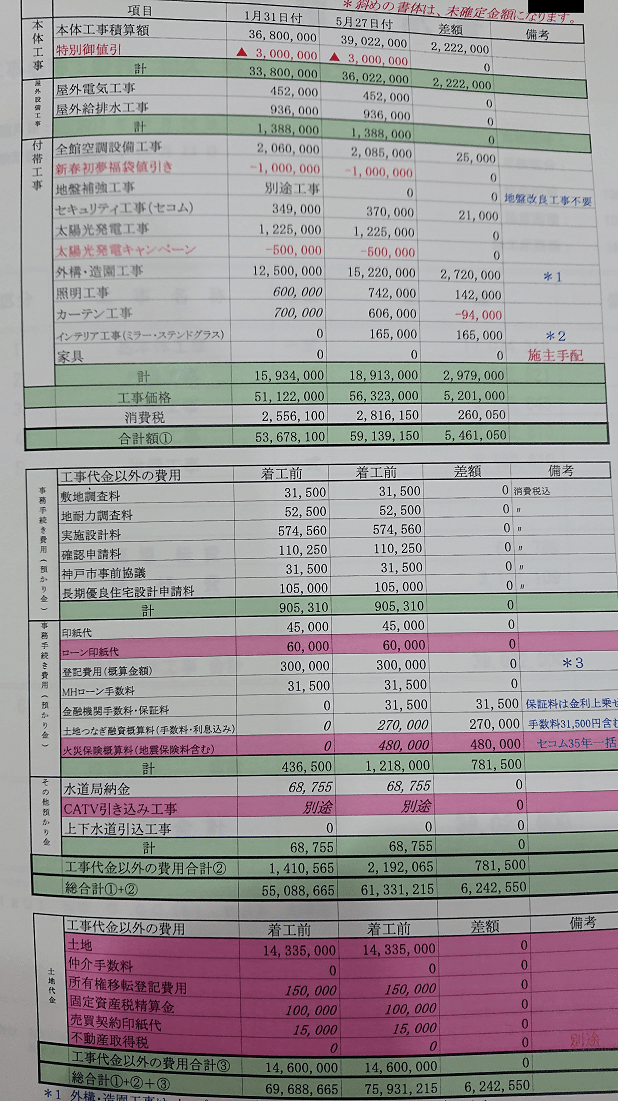 ＊斜めの書体は、未確定金額になります。
項目 1月31日付 5月27日付 差額 備考
本体工事
本体工事積算額 36,800,000 39,022,000 2,222,000
特別御値引 ▲ 3,000,000 ▲ 3,000,000 0
計 33,800,000 36,022,000 2,222,000
屋外設備工事
屋外電気工事 452,000 452,000 0
屋外給排水工事 936,000 936,000 0
計 1,388,000 1,388,000 0
付帯工事
全館空調設備工事 2,060,000 2,085,000 25,000
新春初夢福袋値引き -1,000,000 -1,000,000 0
地盤補強工事 別途工事 0 0 地盤改良工事不要
セキュリティ工事(セコム) 349,000 370,000 21,000
太陽光発電工事 1,225,000 1,225,000 0
太陽光発電キャンペーン -500,000 -500,000 0
外構・造園工事 12,500,000 15,220,000 2,720,000 ＊1
照明工事 600,000 742,000 142,000
カーテン工事 700,000 606,000 -94,000
インテリア工事(ミラー・ステンドグラス) 0 165,000 165,000 ＊2
家具 0 0 0 施主手配
計 15,934,000 18,913,000 2,979,000
工事価格 51,122,000 56,323,000 5,201,000
消費税 2,556,100 2,816,150 260,050
合計額① 53,678,100 59,139,150 5,461,050
工事代金以外の費用 着工前 着工前 差額 備考
事務手続き費用(預かり金)
敷地調査料 31,500 31,500 0 消費税込
地耐力調査料 52,500 52,500 0 〃
実施設計料 574,560 574,560 0 〃
確認申請料 110,250 110,250 0 〃
神戸市事前協議 31,500 31,500 0 〃
長期優良住宅設計申請料 105,000 105,000 0 〃
計 905,310 905,310 0
事務手続き費用(預かり金)
印紙代 45,000 45,000 0
ローン印紙代 60,000 60,000 0
登記費用(概算金額) 300,000 300,000 0 ＊3
MHローン手数料 31,500 31,500 0
金融機関手数料・保証料 0 31,500 31,500 保証料は金利上乗せ
土地つなぎ融資概算料(手数料・利息込み) 0 270,000 270,000 手数料31,500円含む
火災保険概算料(地震保険料含む) 0 480,000 480,000 セコム35年一括
計 436,500 1,218,000 781,500
その他預かり金
水道局納金 68,755 68,755 0
CATV引き込み工事 別途 別途 0
上下水道引込工事 0 0 0
計 68,755 68,755 0
工事代金以外の費用合計② 1,410,565 2,192,065 781,500
総合計①+② 55,088,665 61,331,215 6,242,550
工事代金以外の費用 着工前 着工前 差額 備考
土地代金
土地 14,335,000 14,335,000 0
仲介手数料 0 0 0
所有権移転登記費用 150,000 150,000 0
固定資産税精算金 100,000 100,000 0
売買契約印紙代 15,000 15,000 0
不動産取得税 0 0 0 別途
工事代金以外の費用合計③ 14,600,000 14,600,000 0
総合計①+②+③ 69,688,665 75,931,215 6,242,550
＊1 外構・造園工事は